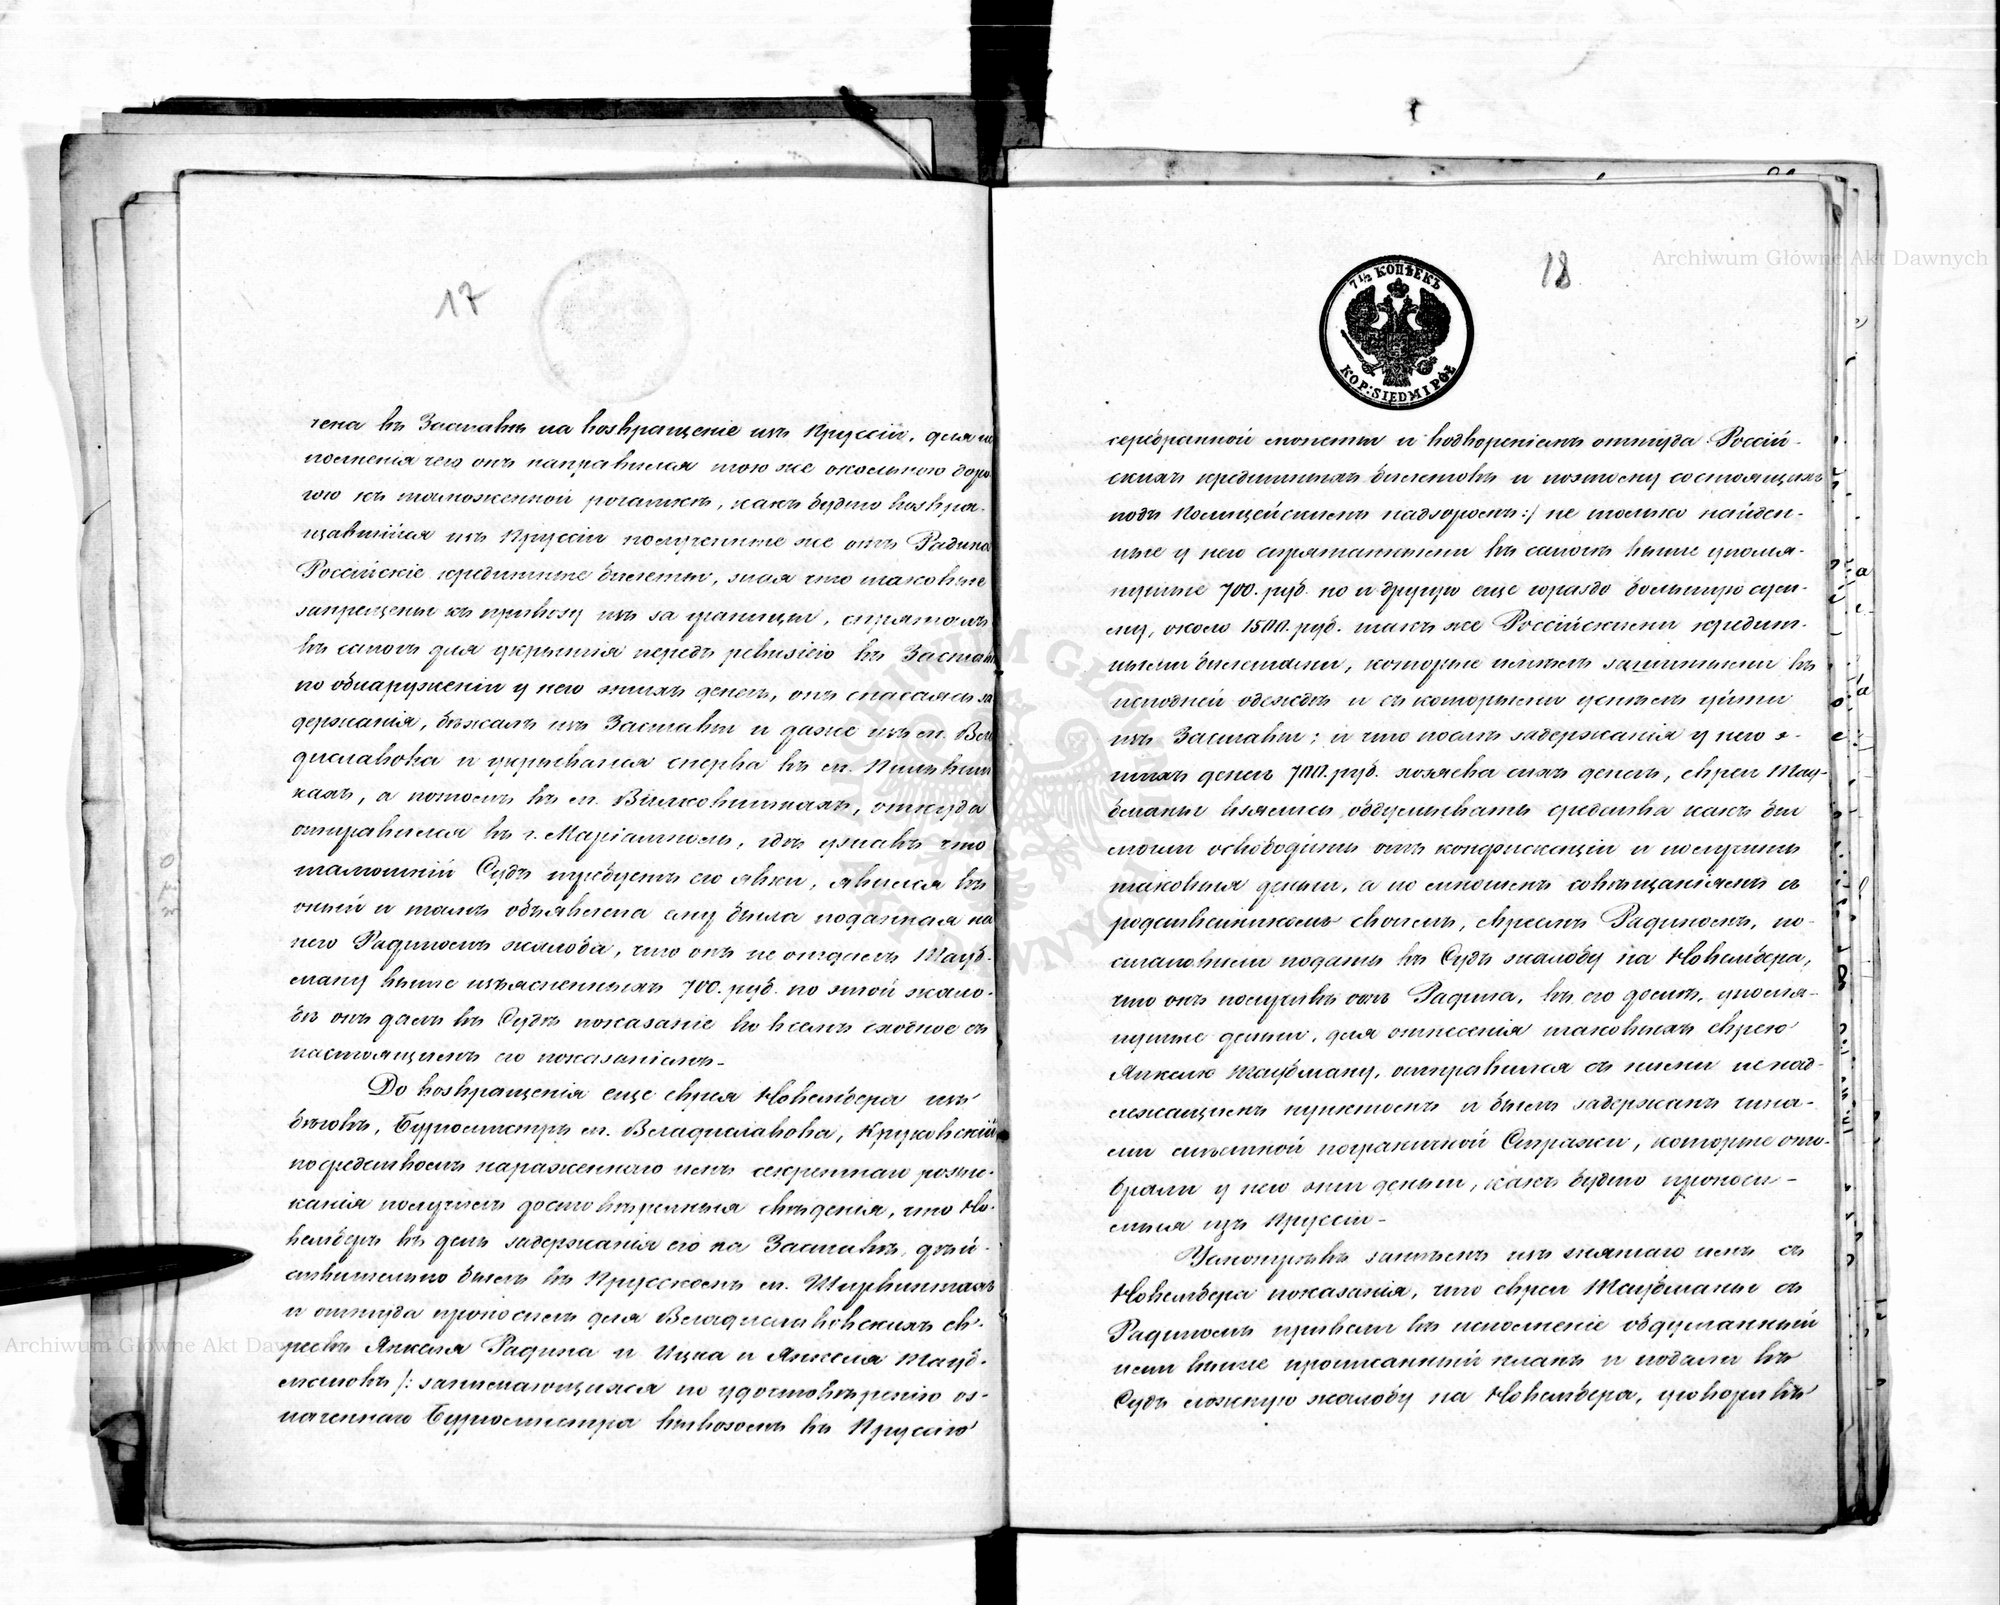 17
чена въ Заставѣ на возвращеніе изъ Пруссіи, для ис
полненія чего онъ направился тою же окольною доро
гою къ таможенной рогаткѣ, какъ будто возвра-
щавшійся изъ Пруссіи полученные же отъ Радина
Россійскіе кредитные билеты, зная что таковые
запрещены къ привозу изъ за границы, спряталъ
въ сапогъ для укрытія передъ ревизіею въ Заставѣ
по обнаруженіи у него этихъ денегъ, онъ спасаясь за
держанія, бѣжалъ изъ Заставы и даже изъ м. Вла
диславова и укрывался сперва въ м. Пильвиш
кахъ, а потомъ въ м. Вилковишкахъ, откуда
отправился въ г. Маріамполь, гдѣ узнавъ что
тамошній Судъ требуетъ его явки, явился въ
оный и тамъ объявлена ему была поданная на
него Радинымъ жалоба, что онъ не отдалъ Мауб-
ману выше изъясненныхъ 700. руб. по этой жало-
бѣ онъ далъ въ Судѣ показаніе во всемъ сходное съ
настоящимъ его показаніемъ-
До возвращенія еще еврея Новембера изъ
бѣговъ, Бургомистръ м. Владиславова, Круковскій
посредствомъ наряженнаго имъ секретнаго розыс-
канія получилъ достовѣрныя свѣденія, что Но-
вемберъ въ день задержанія его на Заставѣ, дѣй-
ствительно былъ въ Прусскомъ м. Ширвинтахъ
и оттуда проносилъ для Владиславовскихъ ев-
реевъ Янкеля Радина и Ицка и Янкеля Мауб-
мановъ /: занимающихся по удостовѣренію оз-
наченнаго Бургомистра вывозомъ въ Пруссію
7 1/2 КОПѢЕКЪ
KOP: SIEDM I PÓŁ
18
серебрянной монеты и водвореніемъ оттуда Россій-
скихъ кредитныхъ билетовъ и поэтому состоящихъ
подъ Полицейскимъ надзоромъ :/ не только найден-
ные у него спрятанными въ сапогѣ выше упомя-
нутые 700. руб. но и другую еще гораздо большую сум-
му, около 1500. руб. также Россійскими кредит-
ными билетами, которые имѣлъ зашитыми въ
исподней одеждѣ и съ которыми успѣлъ уйти
изъ Заставы; и что послѣ задержанія у него э-
тихъ денегъ 700. руб. хозяева сихъ денегъ, евреи Мау-
бманы взялись обдумывать средства какъ бы
могли освободить отъ конфискаціи и получить
таковыя деньги, а по многимъ совѣщаніямъ съ
родственникомъ своимъ, евреемъ Радинымъ, по-
становили подать въ Судъ жалобу на Новембера,
что онъ получивъ отъ Радина, въ его домѣ, упомя-
нутые деньги, для отнесенія таковыхъ еврею
Янкелю Маубману, отправился съ ними ненад-
лежащимъ пунктомъ и былъ задержанъ чина-
ми мѣстной пограничной Стражи, которые ото-
брали у него эти деньги, какъ будто проноси-
мыя изъ Пруссіи-
Усмотрѣвъ затѣмъ изъ снятаго имъ съ
Новембера показанія, что евреи Маубманы съ
Радинымъ привели въ исполненіе обдуманный
ими выше прописанный планъ и подали въ
Судъ ложную жалобу на Новембера, уговоривъ
Archiwum Główne Akt Dawnych
Archiwum Główne Akt Dawnych